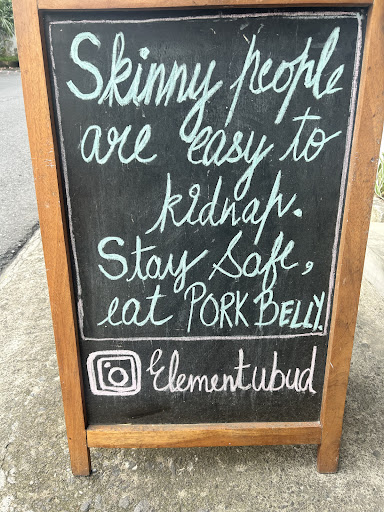 Skinny people
are easy to
kidnap.
Stay Safe,
eat PORK BELLY.
Elementubud